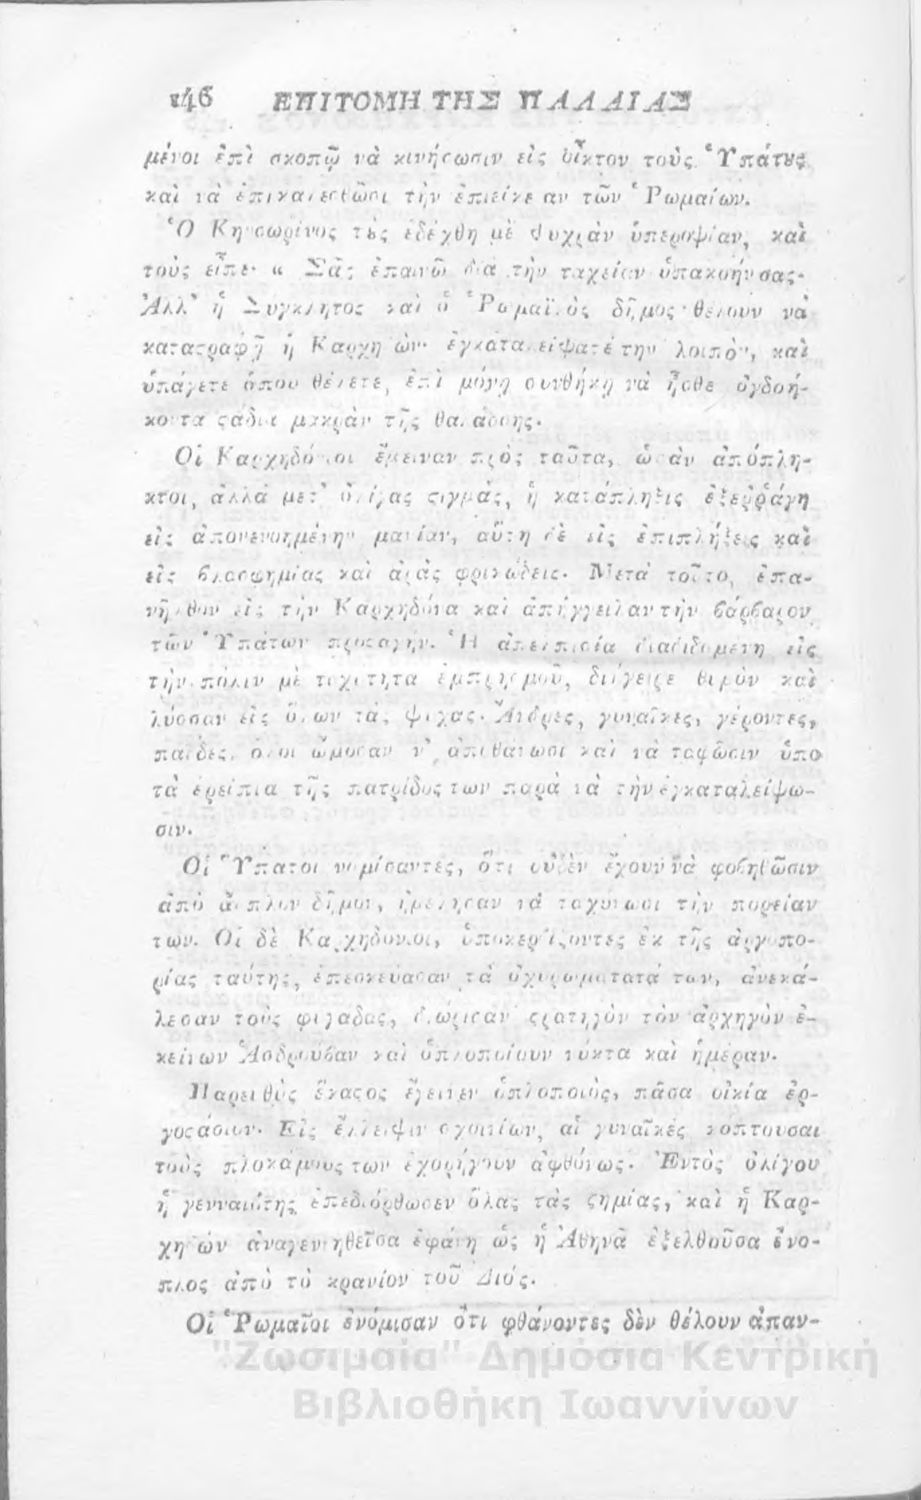 146 ΕΠΙΤΟΜΗ ΤΗΣ ΠΑΛΑΙΑΣ
μένοι ἐπὶ σκοπῷ νὰ κινήσωσιν εἰς οἶκτον τοὺς Ὑπάτȣς
καὶ νὰ ἐπικαλεσθῶσι τὴν ἐπιείκειαν τῶν Ῥωμαίων.
Ὁ Κηνσωρίνος τȣς ἐδέχθη μὲ ψυχρὰν ὑπεροψίαν, καὶ
τοὺς εἶπε· « Σᾶς ἐπαινῶ διὰ τὴν ταχεῖαν ὑπακοήν σας·
Ἀλλ' ἡ Σύγκλητος καὶ ὁ Ῥωμαϊκὸς δῆμος θέλουν νὰ
καταστραφῇ ἡ Καρχηδών· ἐγκαταλείψατέ την λοιπὸν, καὶ
ὑπάγετε ὅπου θέλετε, ἐπὶ μόνῃ συνθήκῃ νὰ ἦσθε ὀγδοή-
κοντα ϛάδια μακρὰν τῆς θαλάσσης.
Οἱ Καρχηδόνιοι ἔμειναν πρὸς ταῦτα, ὡσὰν ἀπόπλη-
κτοι, ἀλλὰ μετ' ὀλίγας ϛιγμὰς, ἡ κατάπληξις ἐξεῤῥάγη
εἰς ἀπονενοημένην μανίαν, αὕτη δὲ εἰς ἐπιπλήξεις καὶ
εἰς βλασφημίας καὶ ἀρὰς φρικώδεις. Μετὰ τοῦτο, ἐπα-
νῆλθον εἰς τὴν Καρχηδόνα καὶ ἀπήγγειλαν τὴν βάρβαρον
τῶν Ὑπάτων προσαγήν. Ἡ ἀπελπισία διαδιδομένη εἰς
τὴν πόλιν μὲ ταχύτητα ἐμπρησμοῦ, διήγειρε θυμὸν καὶ
λύσσαν εἰς ὅλων τὰς ψυχάς. Ἄνδρες, γυναῖκες, γέροντες,
παῖδες, ὅλοι ὤμοσαν ν' ἀποθάνωσι καὶ νὰ ταφῶσιν ὑπὸ
τὰ ἐρείπια τῆς πατρίδος των παρὰ νὰ τὴν ἐγκαταλείψω-
σιν.
Οἱ Ὕπατοι νομίσαντες, ὅτι οὐδὲν ἔχουν νὰ φοβηθῶσιν
ἀπὸ ἄοπλον δῆμον, ἠμέλησαν νὰ ταχύνωσι τὴν πορείαν
των. Οἱ δὲ Καρχηδόνιοι, ὑποκερδίζοντες ἐκ τῆς ἀργοπο-
ρίας ταύτης, ἐπεσκεύασαν τὰ ὀχυρώματατά των, ἀνεκά-
λεσαν τοὺς φυγάδας, διώρισαν ϛρατηγὸν τὸν ἀρχηγὸν ἐ-
κείνων Ἀσδρούβαν καὶ ὁπλοποίουν νύκτα καὶ ἡμέραν.
Παρευθὺς ἕκαϛος ἔγεινεν ὁπλοποιὸς, πᾶσα οἰκία ἐρ-
γοϛάσιον. Εἰς ἔλλειψιν σχοινίων, αἱ γυναῖκες κόπτουσαι
τοὺς πλοκάμους των ἐχορήγουν ἀφθόνως. Ἐντὸς ὀλίγου
ἡ γενναιότης ἐπεδιόρθωσεν ὅλας τὰς ζημίας, καὶ ἡ Καρ-
χηδὼν ἀναγεννηθεῖσα ἐφάνη ὡς ἡ Ἀθηνᾶ ἐξελθοῦσα ἔνο-
πλος ἀπὸ τὸ κρανίον τοῦ Διός.
Οἱ Ῥωμαῖοι ἐνόμισαν ὅτι φθάνοντες δὲν θέλουν ἀπαν-
"Ζωσιμαία" Δημόσια Κεντρική
Βιβλιοθήκη Ιωαννίνων